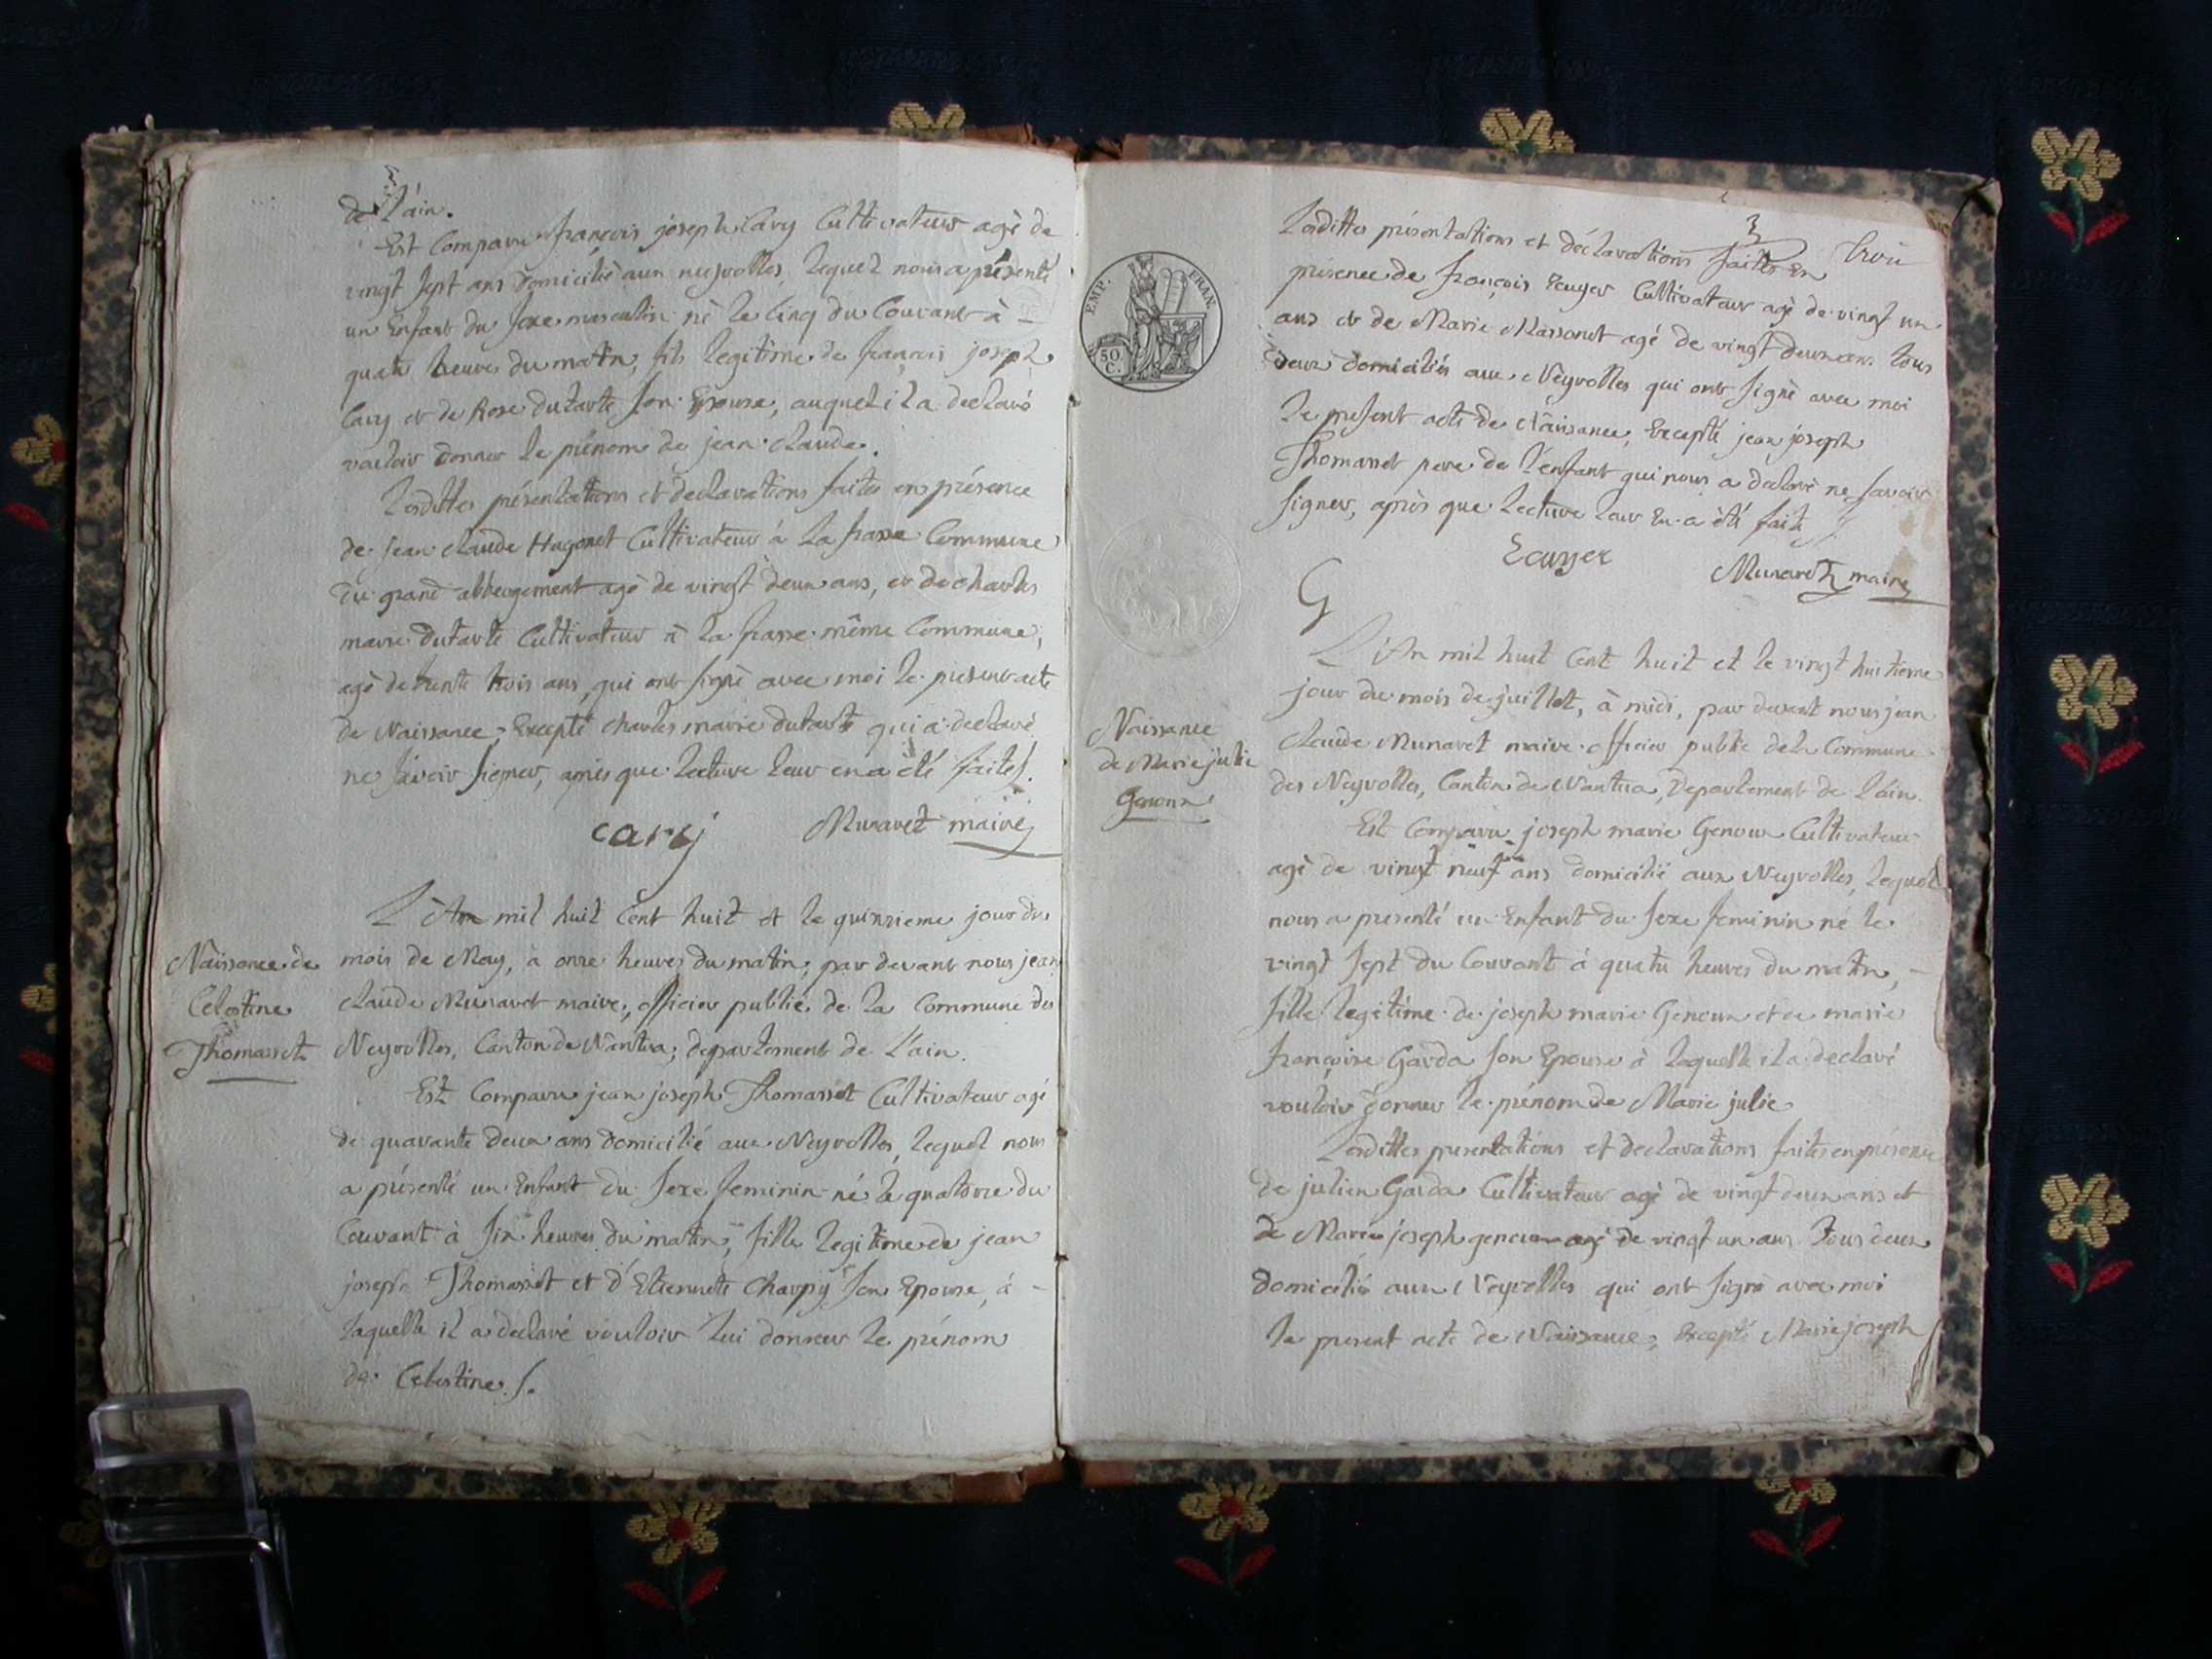 de l'ain.
Est Comparu françois joseph Cary Cultivateur agé de
vingt sept ans domicilié aux neyrolles, lequel nous a présenté
un Enfant du sexe masculin né le Cinq du Courant à
quatre heures du matin, fils legitime de françois joseph
Cary et de Rose dutarte son Epouse, auquel il a declaré
vouloir donner le prénom de jean claude.
Lesdittes présentations et declarations faites en présence
de jean claude Hugonet Cultivateur à la frasse Commune
du grand abbergement agé de vingt deux ans, et de charles
marie dutarte Cultivateur à la frasse même Commune,
agé de trente trois ans, qui ont signé avec moi le présent acte
de Naissance, Excepté charles marie dutarte qui a declaré
ne savoir signer, après que lecture leur en a été faite.
cary Munaret maire
L'An mil huit Cent huit et le quinzieme jour du
Naissance de
Celestine
Thomasset
mois de May, à onze heures du matin, par devant nous jean
claude Munaret maire, officier public de la Commune des
Neyrolles, Canton de Nantua, departement de L'ain.
Est Comparu jean joseph Thomasset Cultivateur agé
de quarante deux ans domicilié aux Neyrolles, lequel nous
a présenté un Enfant du sexe feminin né le quatorze du
Courant à six heures du matin, fille legitime de jean
joseph Thomasset et d'Etiennette Charpy son Epouse, à
laquelle il a declaré vouloir lui donner le prénom
de Celestine.
trois
Lesdittes présentations et déclarations faittes En
présence de françois Ecuyer Cultivateur agé de vingt un
ans et de Marie Massonet agé de vingt deux ans tous
deux domiciliés aux Neyrolles qui ont signé avec moi
le present acte de Naissance, Excepté jean joseph
Thomasset pere de l'enfant qui nous a declaré ne savoir
signer, après que lecture leur En a été faite
Ecuyer Munaret maire
EMP. FRAN.
50 C.
G
L'An mil huit Cent huit et le vingt huitieme
jour du mois de juillet, à midi, par devant nous jean
Naissance
de Marie julie
Genoux
claude Munaret maire officier public de la Commune
des Neyrolles, Canton de Nantua, Departement de l'ain.
Est Comparu joseph marie Genoux Cultivateur
agé de vingt neuf ans domicilié aux Neyrolles, lequel
nous a presenté un Enfant du sexe feminin né le
vingt sept du Courant à quatre heures du matin,
fille legitime de joseph marie Genoux et de marie
françoise Garda son Epouse à laquelle il a declaré
vouloir donner le prénom de Marie julie
Lesdittes presentations et declarations faites en présence
de julien Garda Cultivateur agé de vingt deux ans et
de Marie joseph genoux agé de vingt un ans tous deux
domiciliés aux Neyrolles qui ont signé avec moi
le present acte de Naissance, Excepté Marie joseph